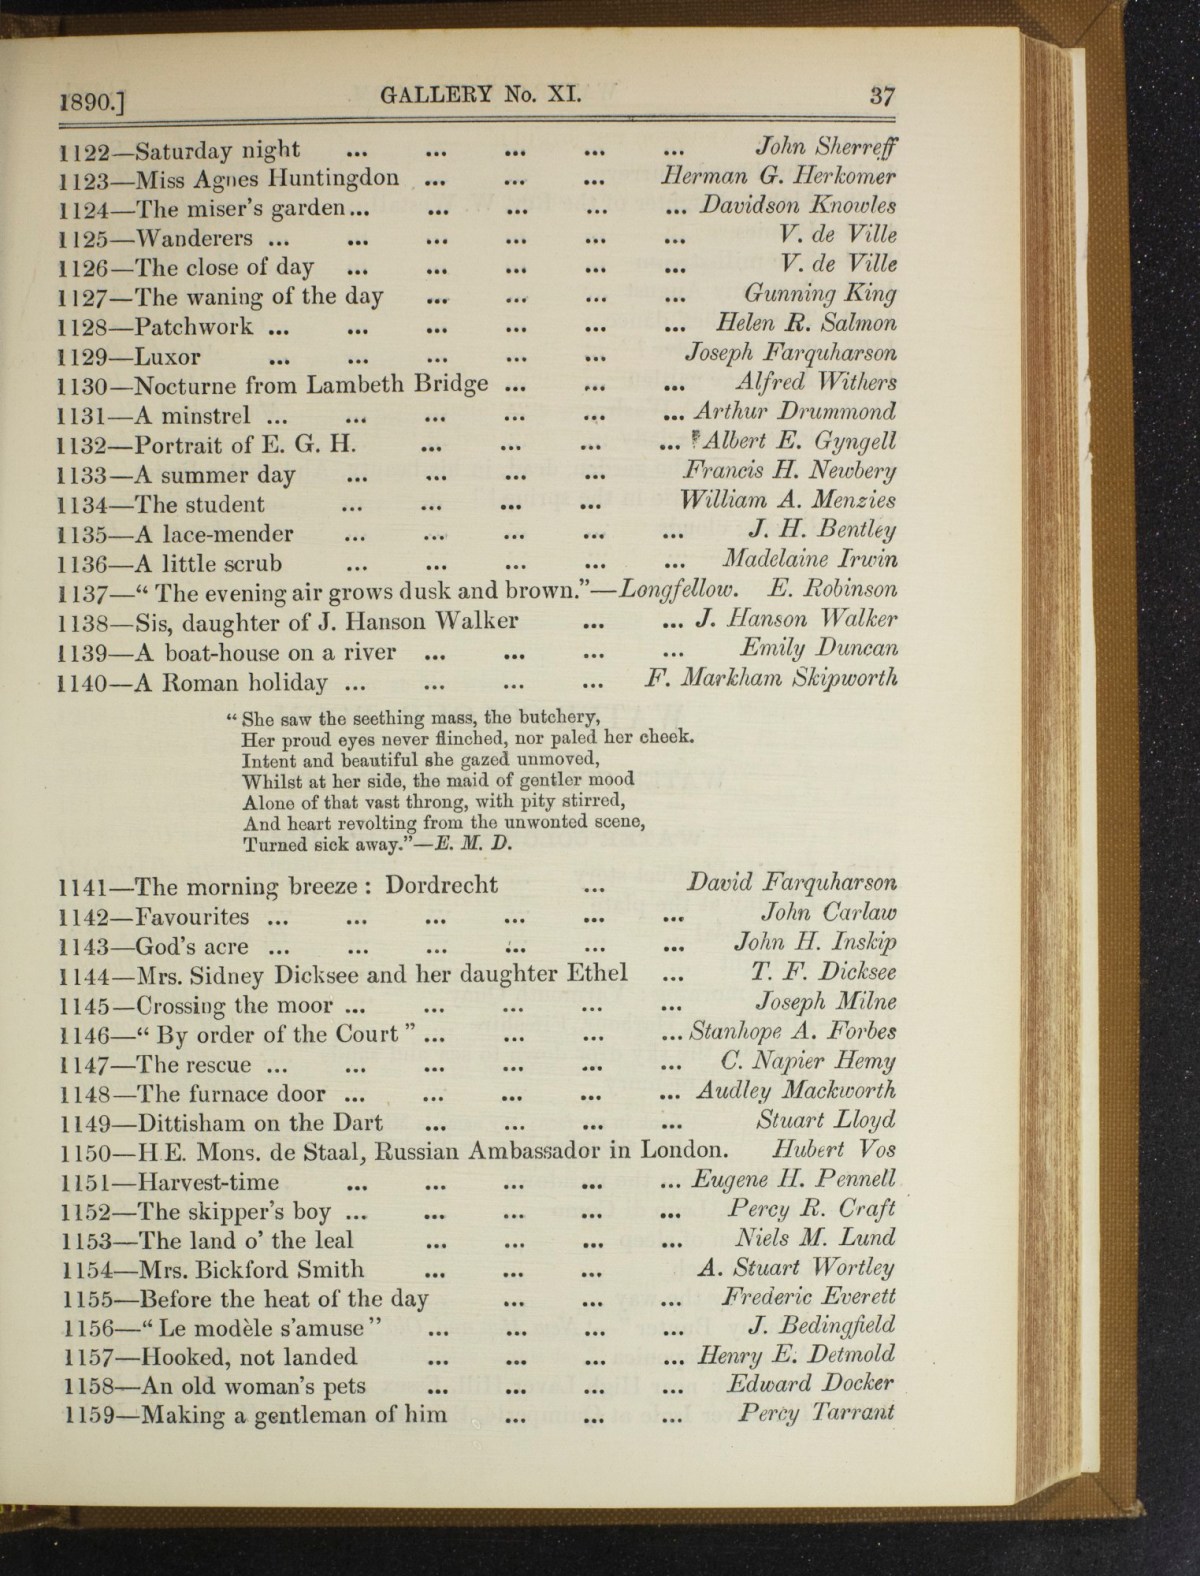 1890.] GALLERY No. XI. 37
1122—Saturday night ... ... ... ... ... John Sherreff
1123—Miss Agnes Huntingdon ... ... ... Herman G. Herkomer
1124—The miser's garden... ... ... ... ... Davidson Knowles
1125—Wanderers ... ... ... ... ... ... V. de Ville
1126—The close of day ... ... ... ... ... V. de Ville
1127—The waning of the day ... ... ... ... Gunning King
1128—Patchwork ... ... ... ... ... ... Helen R. Salmon
1129—Luxor ... ... ... ... ... Joseph Farquharson
1130—Nocturne from Lambeth Bridge ... ... ... Alfred Withers
1131—A minstrel ... ... ... ... ... ... Arthur Drummond
1132—Portrait of E. G. H. ... ... ... ... Albert E. Gyngell
1133—A summer day ... ... ... ... Francis H. Newbery
1134—The student ... ... ... ... William A. Menzies
1135—A lace-mender ... ... ... ... ... J. H. Bentley
1136—A little scrub ... ... ... ... ... Madelaine Irwin
1137—“ The evening air grows dusk and brown.”—Longfellow. E. Robinson
1138—Sis, daughter of J. Hanson Walker ... ... J. Hanson Walker
1139—A boat-house on a river ... ... ... ... Emily Duncan
1140—A Roman holiday ... ... ... ... F. Markham Skipworth
“ She saw the seething mass, the butchery,
Her proud eyes never flinched, nor paled her cheek.
Intent and beautiful she gazed unmoved,
Whilst at her side, the maid of gentler mood
Alone of that vast throng, with pity stirred,
And heart revolting from the unwonted scene,
Turned sick away.”—E. M. D.
1141—The morning breeze : Dordrecht ... David Farquharson
1142—Favourites ... ... ... ... ... ... John Carlaw
1143—God's acre ... ... ... ... ... ... John H. Inskip
1144—Mrs. Sidney Dicksee and her daughter Ethel ... T. F. Dicksee
1145—Crossing the moor ... ... ... ... ... Joseph Milne
1146—“ By order of the Court ” ... ... ... ... Stanhope A. Forbes
1147—The rescue ... ... ... ... ... ... C. Napier Hemy
1148—The furnace door ... ... ... ... ... Audley Mackworth
1149—Dittisham on the Dart ... ... ... ... Stuart Lloyd
1150—H.E. Mons. de Staal, Russian Ambassador in London. Hubert Vos
1151—Harvest-time ... ... ... ... ... Eugene H. Pennell
1152—The skipper's boy ... ... ... ... ... Percy R. Craft
1153—The land o' the leal ... ... ... ... Niels M. Lund
1154—Mrs. Bickford Smith ... ... ... A. Stuart Wortley
1155—Before the heat of the day ... ... ... Frederic Everett
1156—“ Le modèle s'amuse ” ... ... ... ... J. Bedingfield
1157—Hooked, not landed ... ... ... ... Henry E. Detmold
1158—An old woman's pets ... ... ... ... Edward Docker
1159—Making a gentleman of him ... ... ... Percy Tarrant